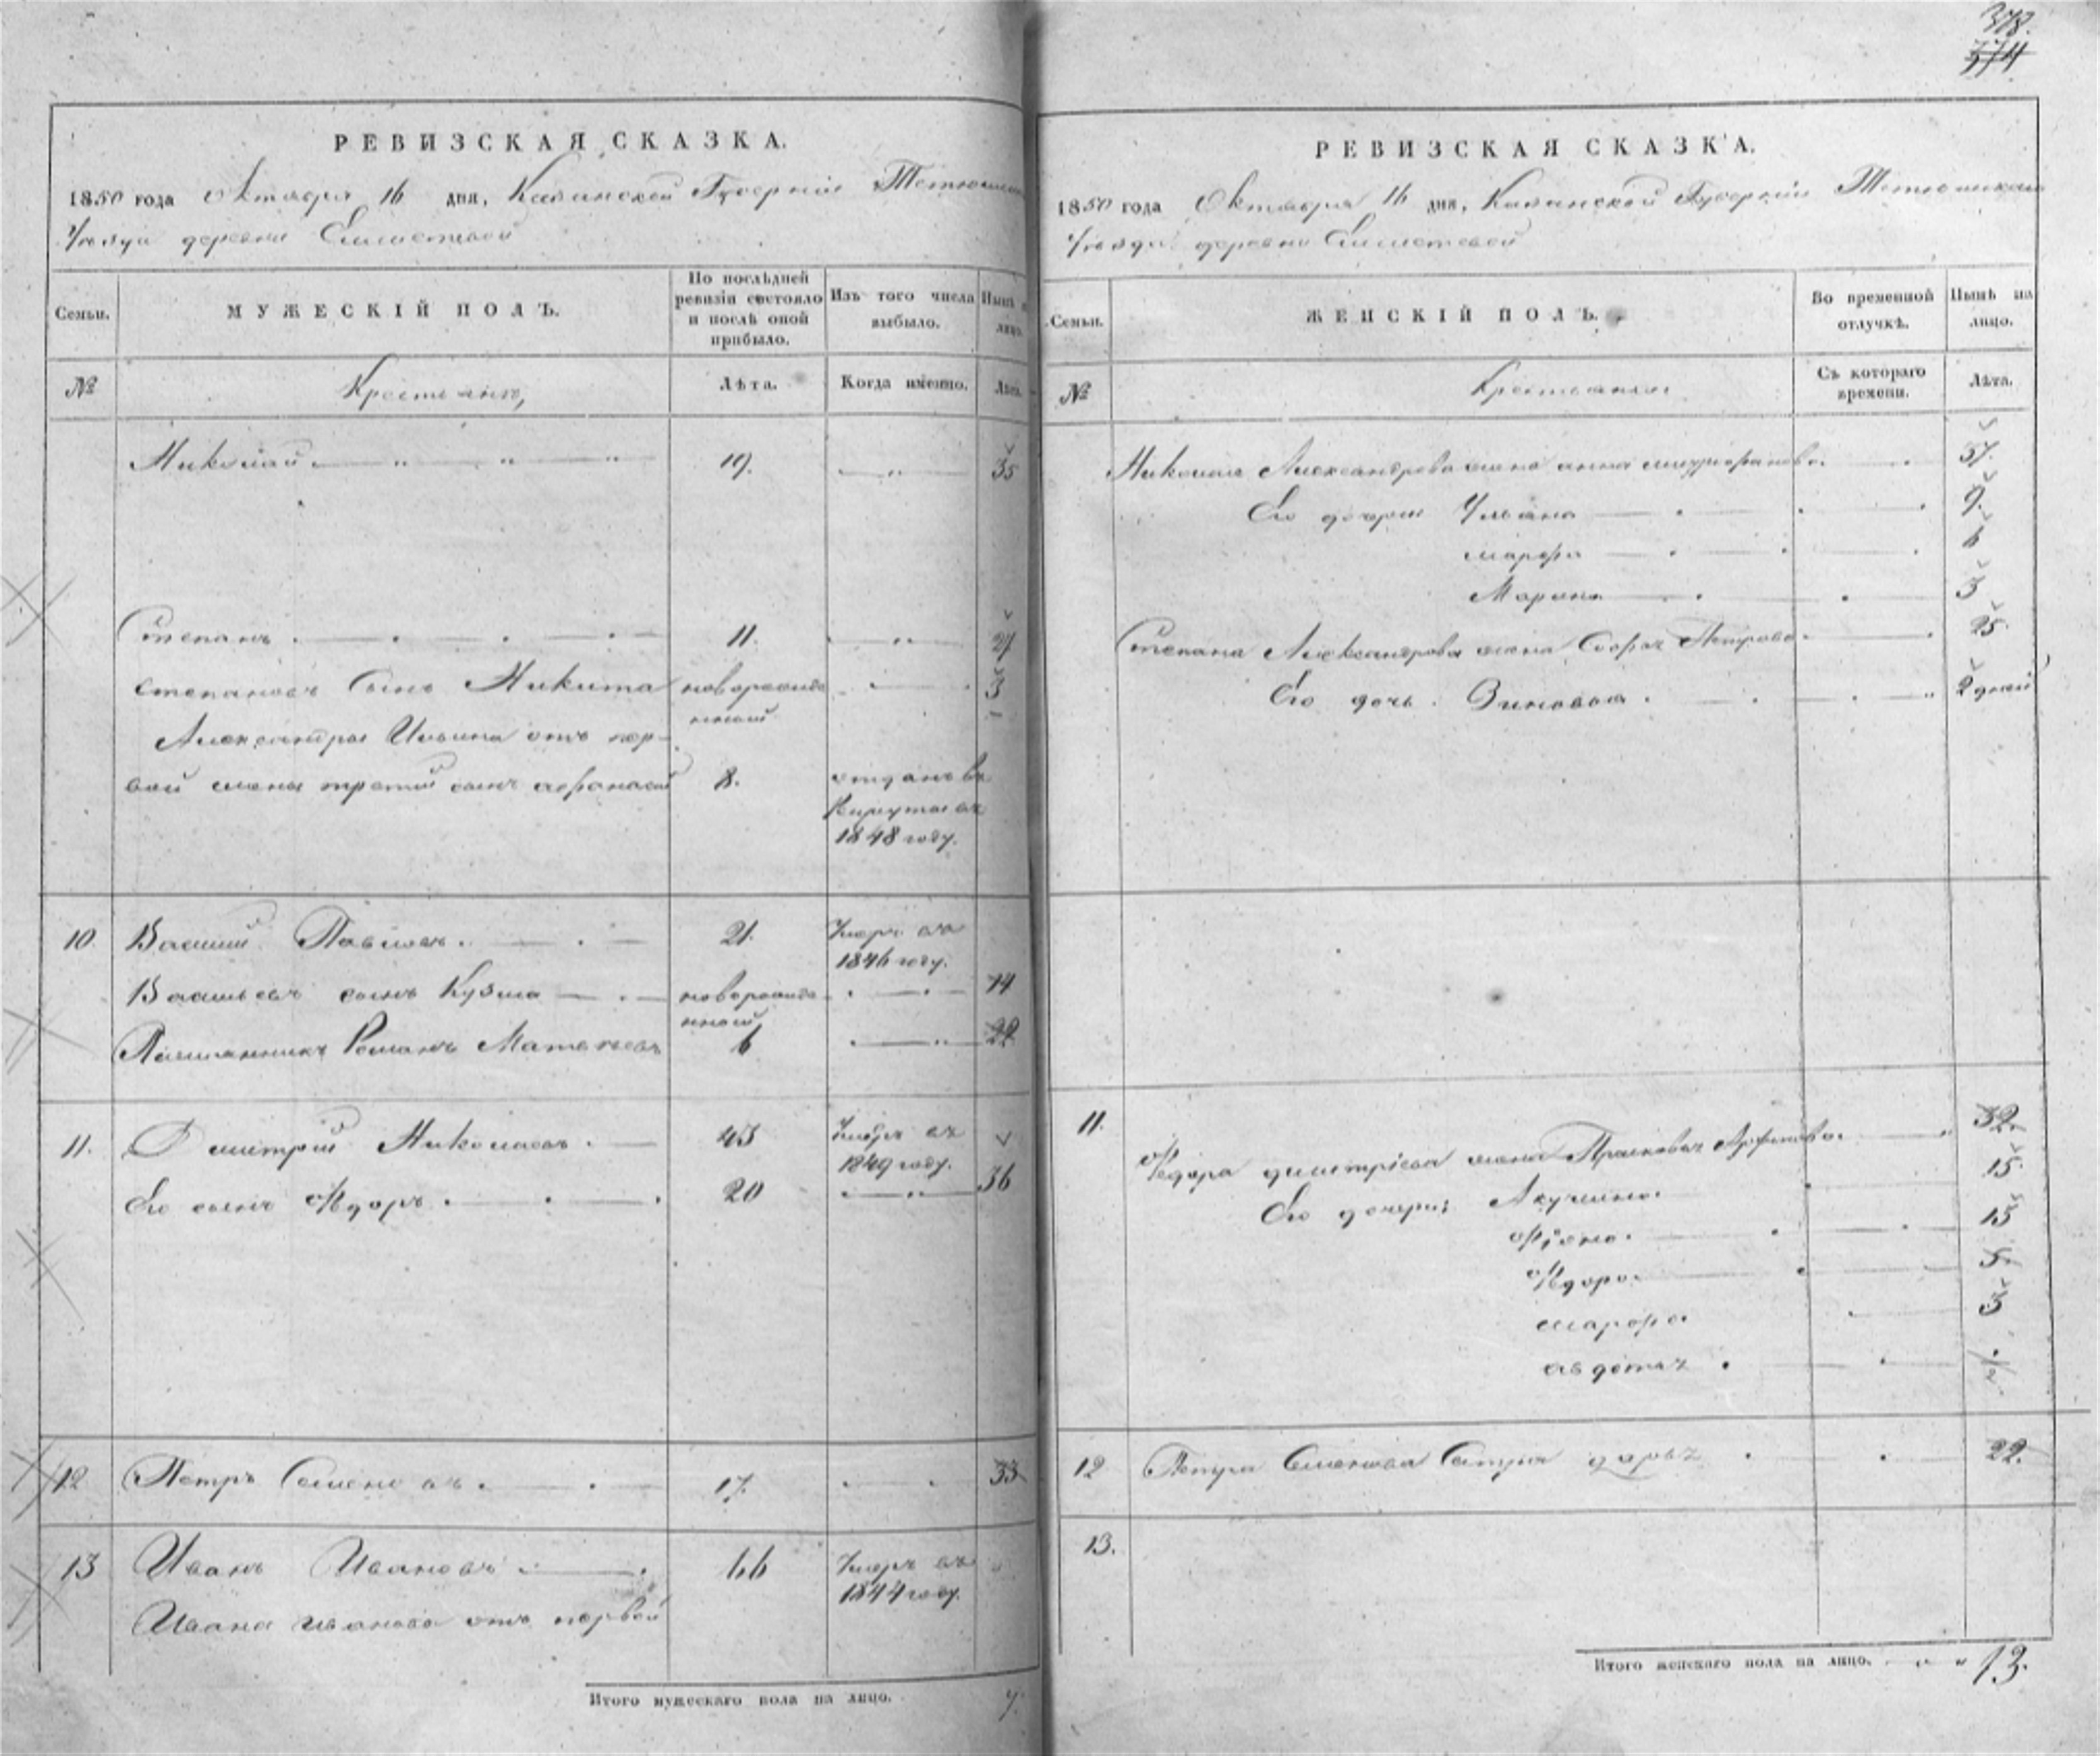 378.
374
РЕВИЗСКАЯ СКАЗКА.
1850 года Октября 16 дня, Казанской Губернiи Тетюшскаго
Уѣзда деревни
Семьи.
МУЖЕСКIЙ ПОЛЪ.
По послѣдней ревизiи состояло и послѣ оной прибыло.
Изъ того числа выбыло.
Нынѣ на лицо.
№
Крестьяне,
Лѣта.
Когда именно.
Лѣта.
Николай 19. 35
Степанъ 11. 27
Степановъ сынъ Никита новорожденный 3
Александра Ильина отъ пер-
вой жены третiй сынъ афанасiй 8. отданъ въ
рекруты въ
1848 году.
10 Василiй Павловъ 21. Умеръ въ
1846 году.
Васильевъ сынъ Кузма новорожденной 14
Племянникъ Романъ Матвѣевъ 6 22
11. Дмитрiй Николаевъ 45 Умеръ въ
1849 году.
Его сынъ Ѳедоръ 20 36
12 Петръ Семеновъ 17. 33
13 Иванъ Ивановъ 66 Умеръ въ
1844 году.
Ивана Иванова отъ первой
Итого мужескаго пола на лицо. 7.
РЕВИЗСКАЯ СКАЗКА.
1850 года Октября 16 дня, Казанской Губернiи Тетюшскаго
Уѣзда деревни
Семьи.
ЖЕНСКIЙ ПОЛЪ.
Во временной отлучкѣ.
Нынѣ на лицо.
№
Крестьянки
Съ котораго времени.
Лѣта.
Николая Александрова жена анна митрофанова. 37.
Его дочери Ульяна 9.
марфа 6
Марина 3
Степана Александрова жена Софья Петрова 25.
Его дочь Зиновья 2 дней
11. Ѳедора дмитрiева жена Прасковья 32.
Его дочери; Акулина 15.
13
Ѳедора 5.
марфа 3
авдотья 1/2
12 Петра Семенова Сестра дарья 22.
13.
Итого женскаго пола на лицо. 13.